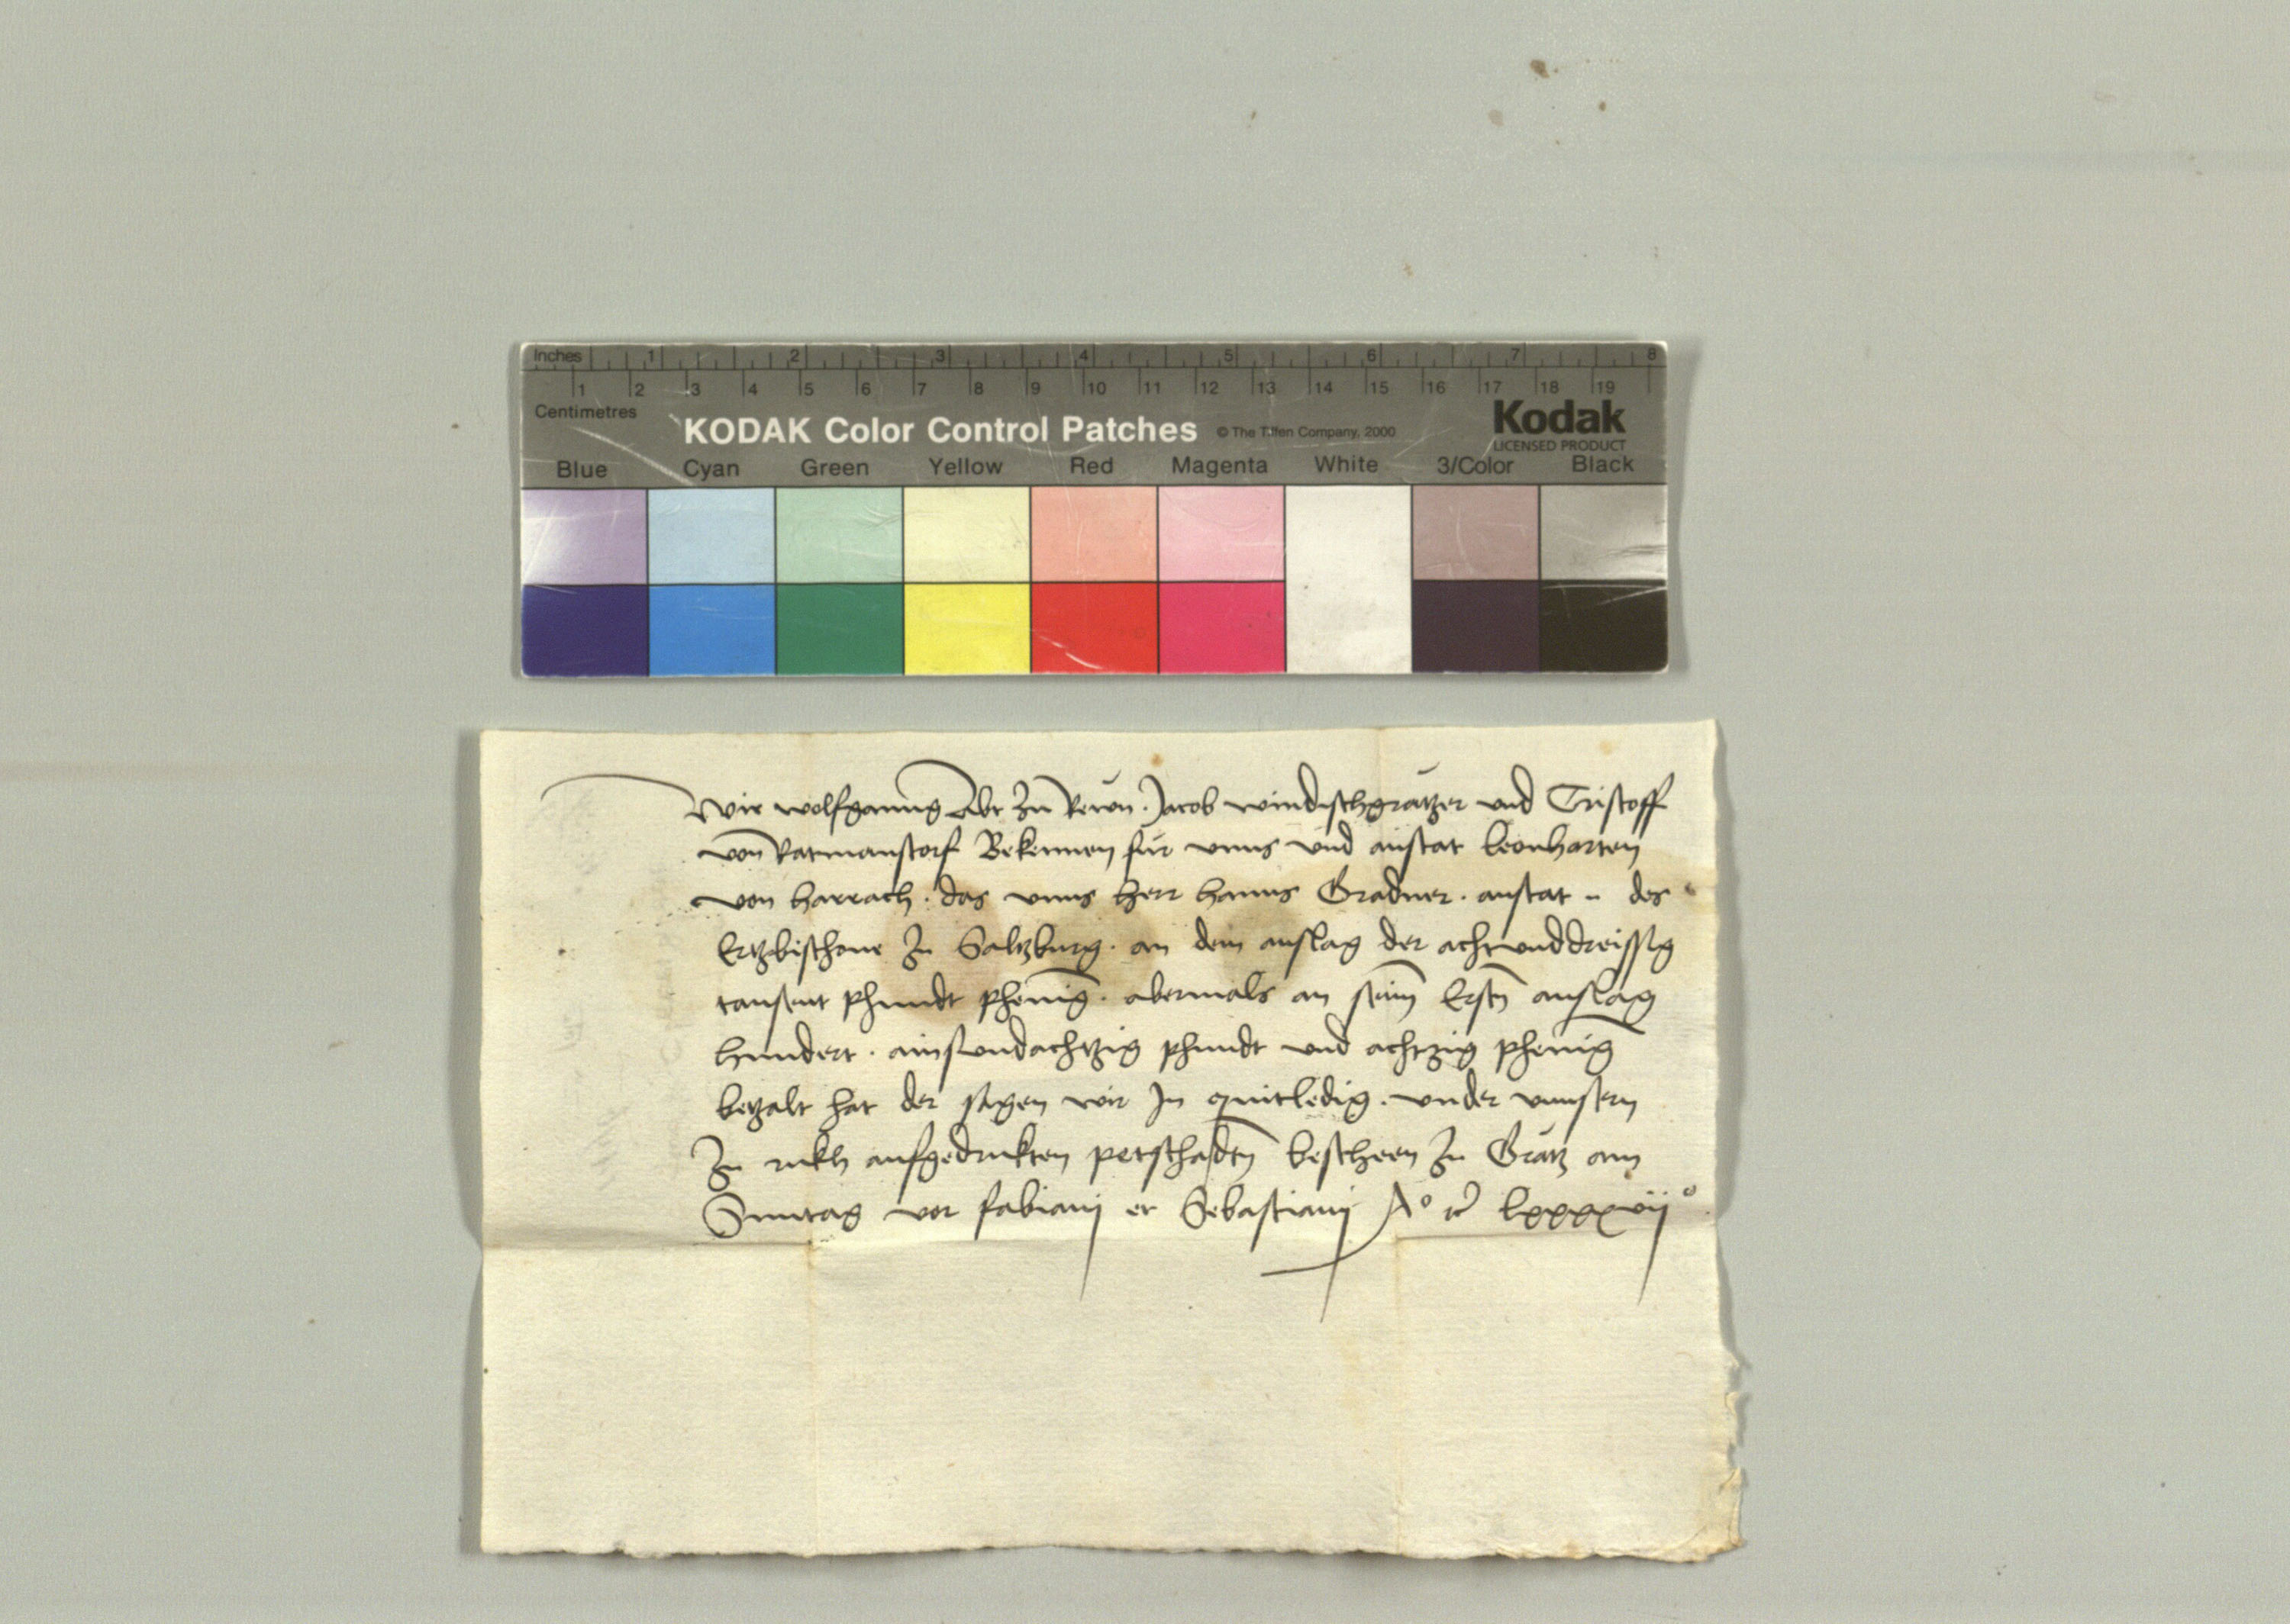 Inches 1 2 3 4 5 6 7 8
1 2 3 4 5 6 7 8 9 10 11 12 13 14 15 16 17 18 19
Centimetres
KODAK Color Control Patches © The Tiffen Company, 2000 Kodak
LICENSED PRODUCT
Blue Cyan Green Yellow Red Magenta White 3/Color Black
Wir wolfganng Abt zu Rewn. Jacob windischgrätzer und Cristoff
von Ratmanstorf Bekennen für unns und anstat leonharten
von harrach. das unns herr hanns Gradner. anstat des
Ertzbischove zu Saltzburg. an dem anslag der achtunddreissig
tausent phundt phenig. abermals an seim Ersten anslag
hundert. ainsundachtzig phundt und achtzig phenig
betzalt hat der sagen wir In quitledig. under unnsern
zu rukh aufgedrukten petschadten bescheen zu Grätz am
Sunntag vor fabiani et Sebastiani Aº rc lxxxxviiº